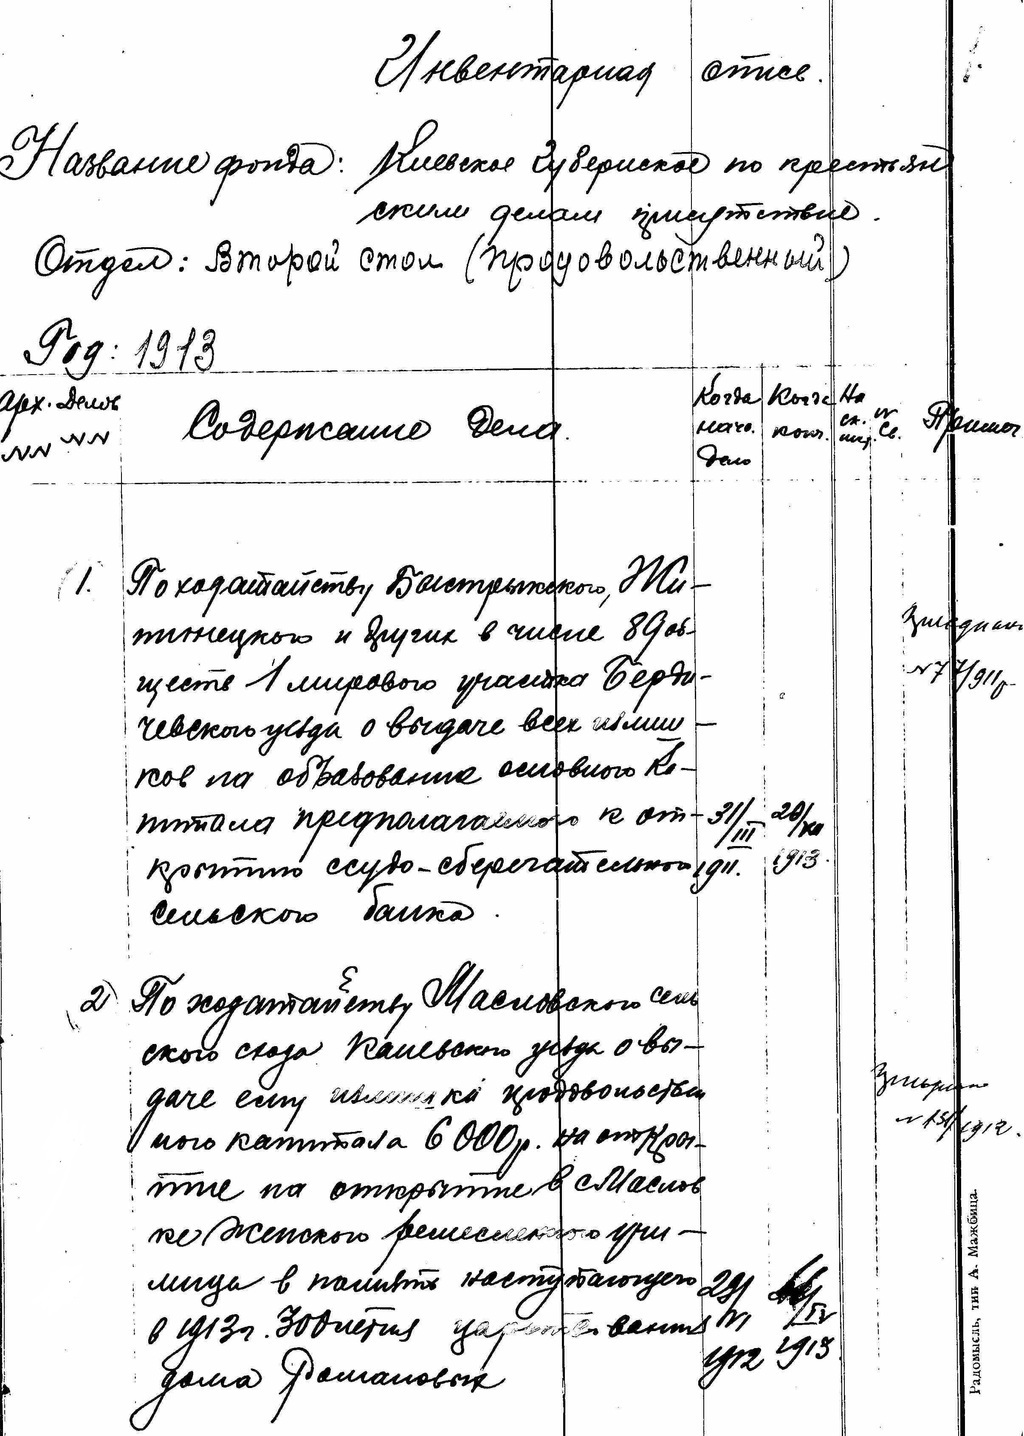 Инвентарная опись.
Название фонда: Киевское Губернское по крестьян
ским делам присутствие.
Отдел: Второй стол (продовольственный)
Год: 1913
Арх. Делов
NN NN
Содержание Дела.
Когда нача. дело
Когда конч.
На ск. лист.
N Св.
Примеч
1. По ходатайству Быстрыкского, Жи-
тинецкого и других в числе 89 об-
ществ 1 мирового участка Берди-
чевского уезда о выдаче всех излиш-
ков на образование основного Ка-
питала предполагаемого к от-
крытию ссудо-сберегательного
сельского банка.
31/III 1911.
20/XII 1913.
N 77/911 г
2) По ходатайству Масловского сель
ского схода Каневского уезда о вы-
даче ему излишка продовольствен
ного капитала 6000 р. на откры-
тие на открытие в с Маслов
ке Женского ремесленного учи-
лища в память наступающего
в 1913 г. 300 летия царствования
дома Романовых
29/VI 1912
/IV 1913
N 131/1912.
Радомысль, тип А. Мажбица.